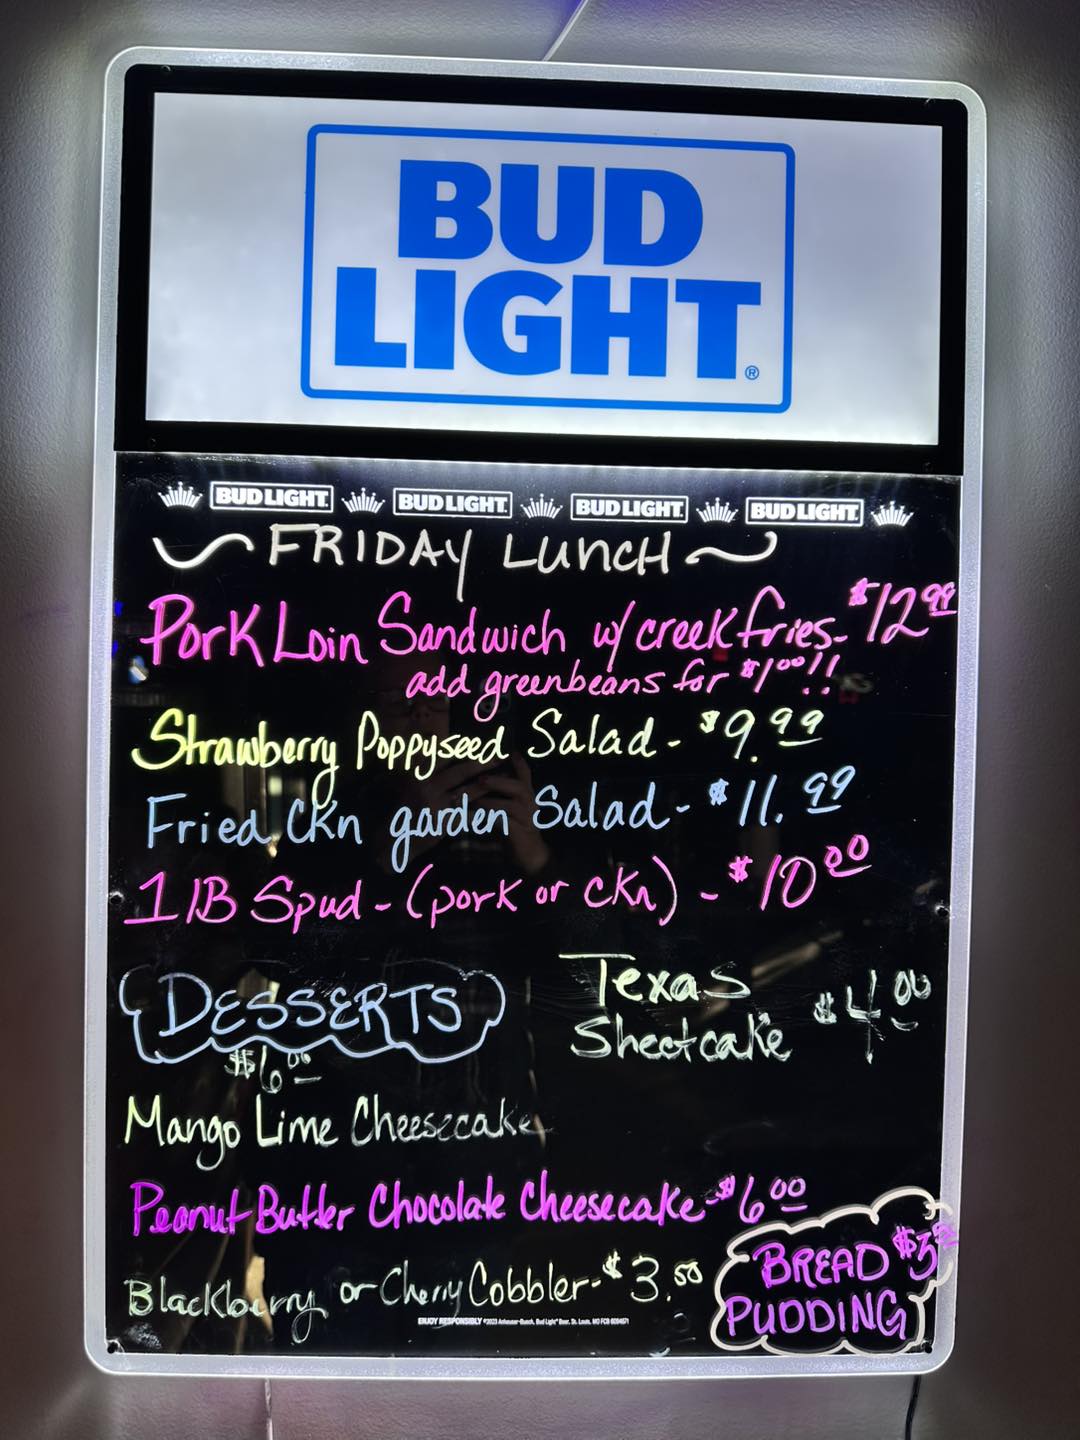 BUD
LIGHT®
BUD LIGHT. BUD LIGHT. BUD LIGHT. BUD LIGHT.
FRIDAY LUNCH
Pork Loin Sandwich w/ creek fries - $12.99
add greenbeans for $1.00!!
Strawberry Poppyseed Salad - $9.99
Fried Ckn garden Salad - $11.99
1 lB Spud - (pork or ckn) - $10.00
DESSERTS
$6.00
Texas
Sheetcake $4.00
Mango Lime Cheesecake
Peanut Butter Chocolate Cheesecake - $6.00
Blackberry or Cherry Cobbler - $3.50
BREAD
PUDDING
ENJOY RESPONSIBLY ©2023 Anheuser-Busch, Bud Light® Beer, St. Louis, MO